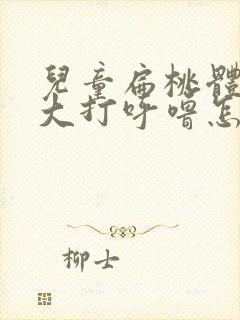 兒童扁桃體
大打呼嚕怎
柳士